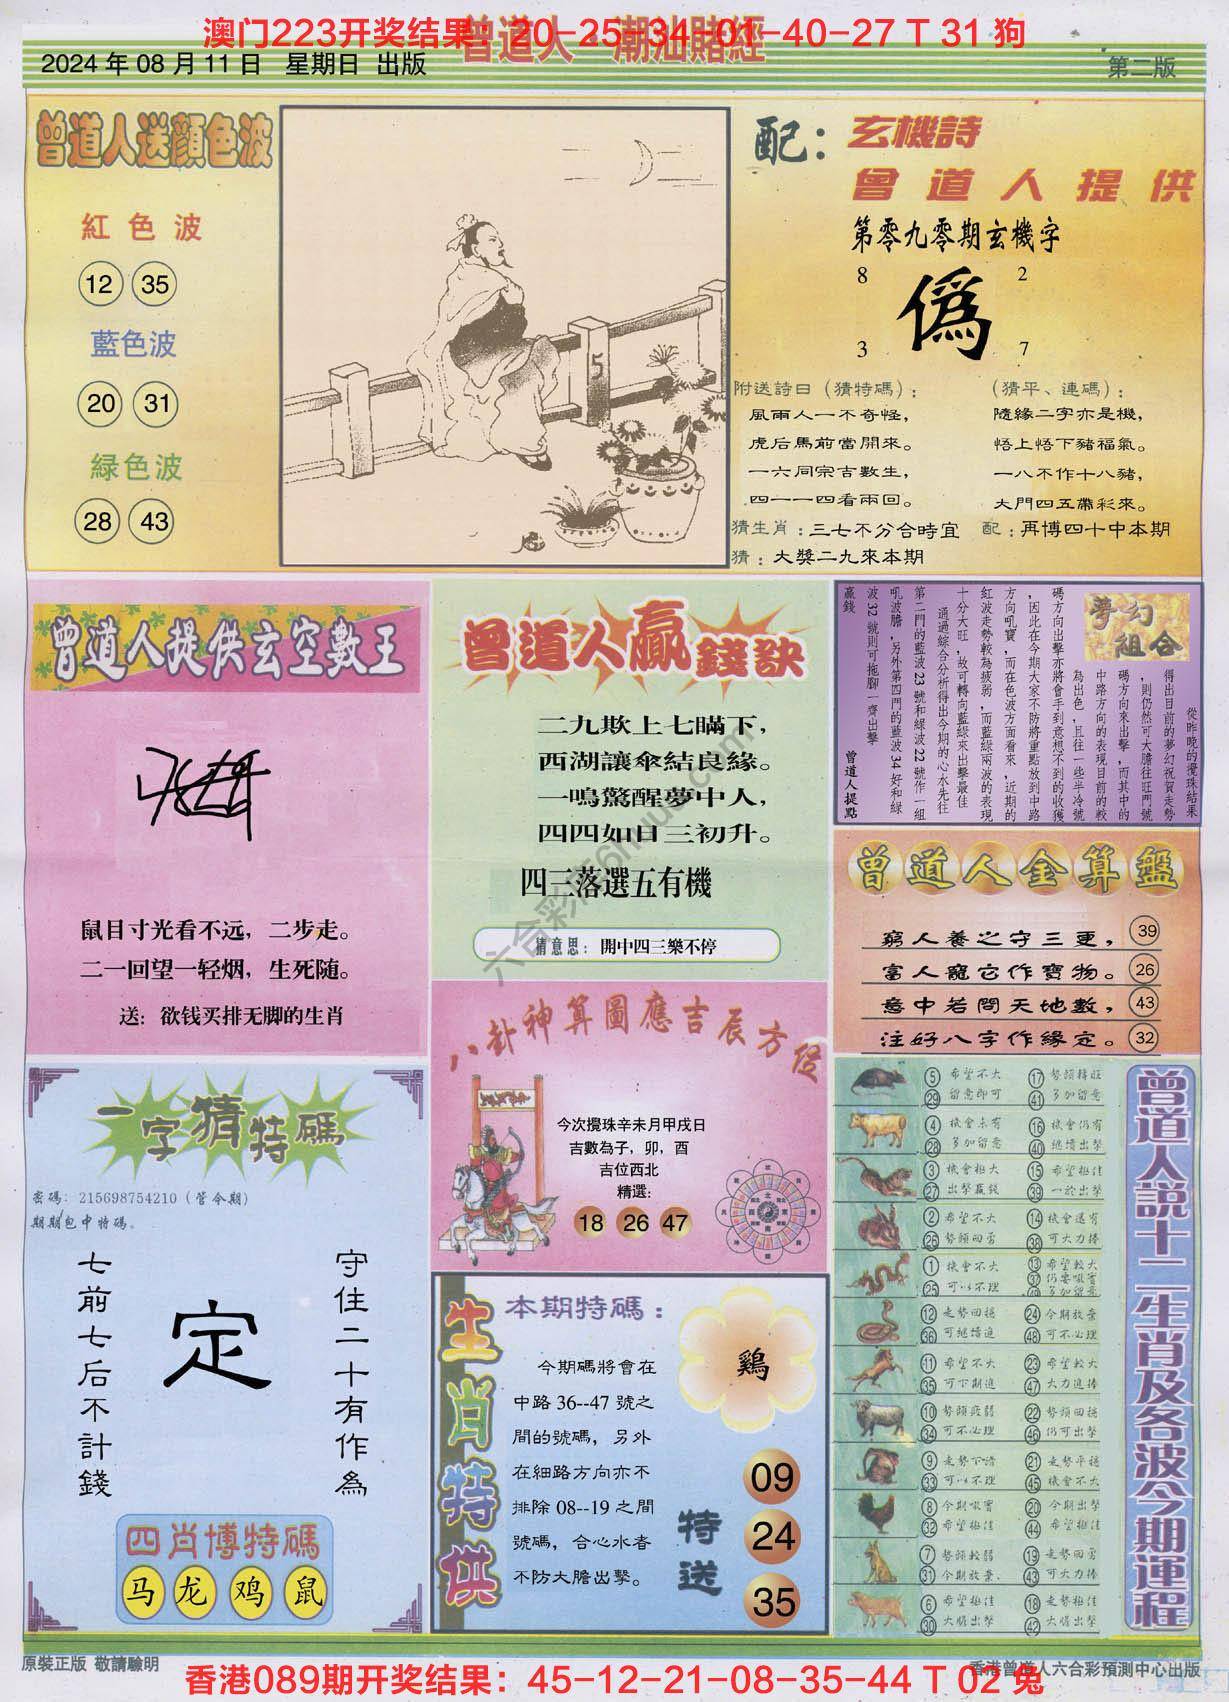 澳门223开奖结果：20-25-34-01-40-27 T 31 狗
曾道人 潮汕賭經
2024 年 08 月 11 日 星期日 出版
第二版
曾道人送顏色波
紅色波
12 35
藍色波
20 31
緑色波
28 43
5
配：玄機詩
曾道人提供
第零九零期玄機字
8 2
偽
3 7
附送詩曰（猜特碼）：
風雨人一不奇怪，
虎后馬前當開來。
一六同宗吉數生，
四一一四看兩回。
（猜平、連碼）：
隨緣二字亦是機，
悟上悟下豬福氣。
一八不作十八豬，
大門四五帶彩來。
猜生肖：三七不分合時宜
配：再博四十中本期
猜：大獎二九來本期
曾道人提供玄空數王
鼠目寸光看不远，二步走。
二一回望一轻烟，生死随。
送：欲钱买排无脚的生肖
曾道人贏錢訣
二九欺上七瞞下，
西湖讓傘結良緣。
一鳴驚醒夢中人，
四四如日三初升。
四三落選五有機
猜意思：閒中四三樂不停
夢幻組合
從昨晚的攪珠結果
得出目前的夢幻祝賀走勢
，則仍然可大膽往旺門號
碼方向來出擊，而其中的
中路方向的表現目前的較
為出色，且往一些半冷號
碼方向出擊亦將會手到意想不到的收獲
，因此在今期大家不防將重點放到中路
方向吼寶，而在色波方面看來，近期的
紅波走勢較為疲弱，而藍綠兩波的表現
十分大旺，故可轉向藍綠來出擊最佳
通過綜合分析得出今期的心水先往
第二門的藍波 23 號和綠波 22 號作一組
吼波膽，另外第四門的藍波 34 好和綠
波 32 號則可拖腳一齊出擊
贏錢
曾道人提點
曾道人金算盤
窮人養之守三更， 39
富人寵它作寶物。 26
意中若問天地數， 43
注好八字作緣定。 32
八卦神算圖應吉辰方位
今次攪珠辛未月甲戌日
吉數為子，卯，酉
吉位西北
精選:
18 26 47
一字猜特碼
密碼: 215698754210 (管今期)
期期包中特碼。
守住二十有作為
定
七前七后不計錢
四肖博特碼
马 龙 鸡 鼠
生肖特供
本期特碼：
今期碼將會在
中路 36--47 號之
間的號碼，另外
在細路方向亦不
排除 08--19 之間
號碼，合心水者
不防大膽出擊。
鷄
特送
09
24
35
曾道人説十二生肖及各波今期運程
5 希望不大 17 勢頭轉旺
29 留意即可 41 多加留意
4 機會未有 16 機會仍有
28 多加留意 40 繼續出擊
3 機會極大 15 希望極佳
27 出擊贏錢 39 一於出擊
2 希望不大 14 機會還有
26 勢頭回勇 38 可大力捧
1 機會不大 13 希望較大
25 可以不理
12 走勢回穩 24 今期放棄
36 可繼續追 48 可不必理
11 希望不大 23 希望較大
35 可下期追 47 大力追捧
10 勢頭疲弱 22 勢頭回穩
34 可不必理 46 仍可出擊
9 走勢下滑 21 走勢平穩
33 可以不理 45 機會不大
8 今期吼寶 20 今期出擊
32 希望極佳 44 希望極佳
7 勢頭較弱 19 走勢回勇
31 今期放棄、 43 可大力捧
6 希望極佳 18 走勢極佳
30 大膽出擊 42 大膽出擊
原裝正版 敬請驗明
香港曾道人六合彩預測中心出版
香港089期开奖结果：45-12-21-08-35-44 T 02 兔